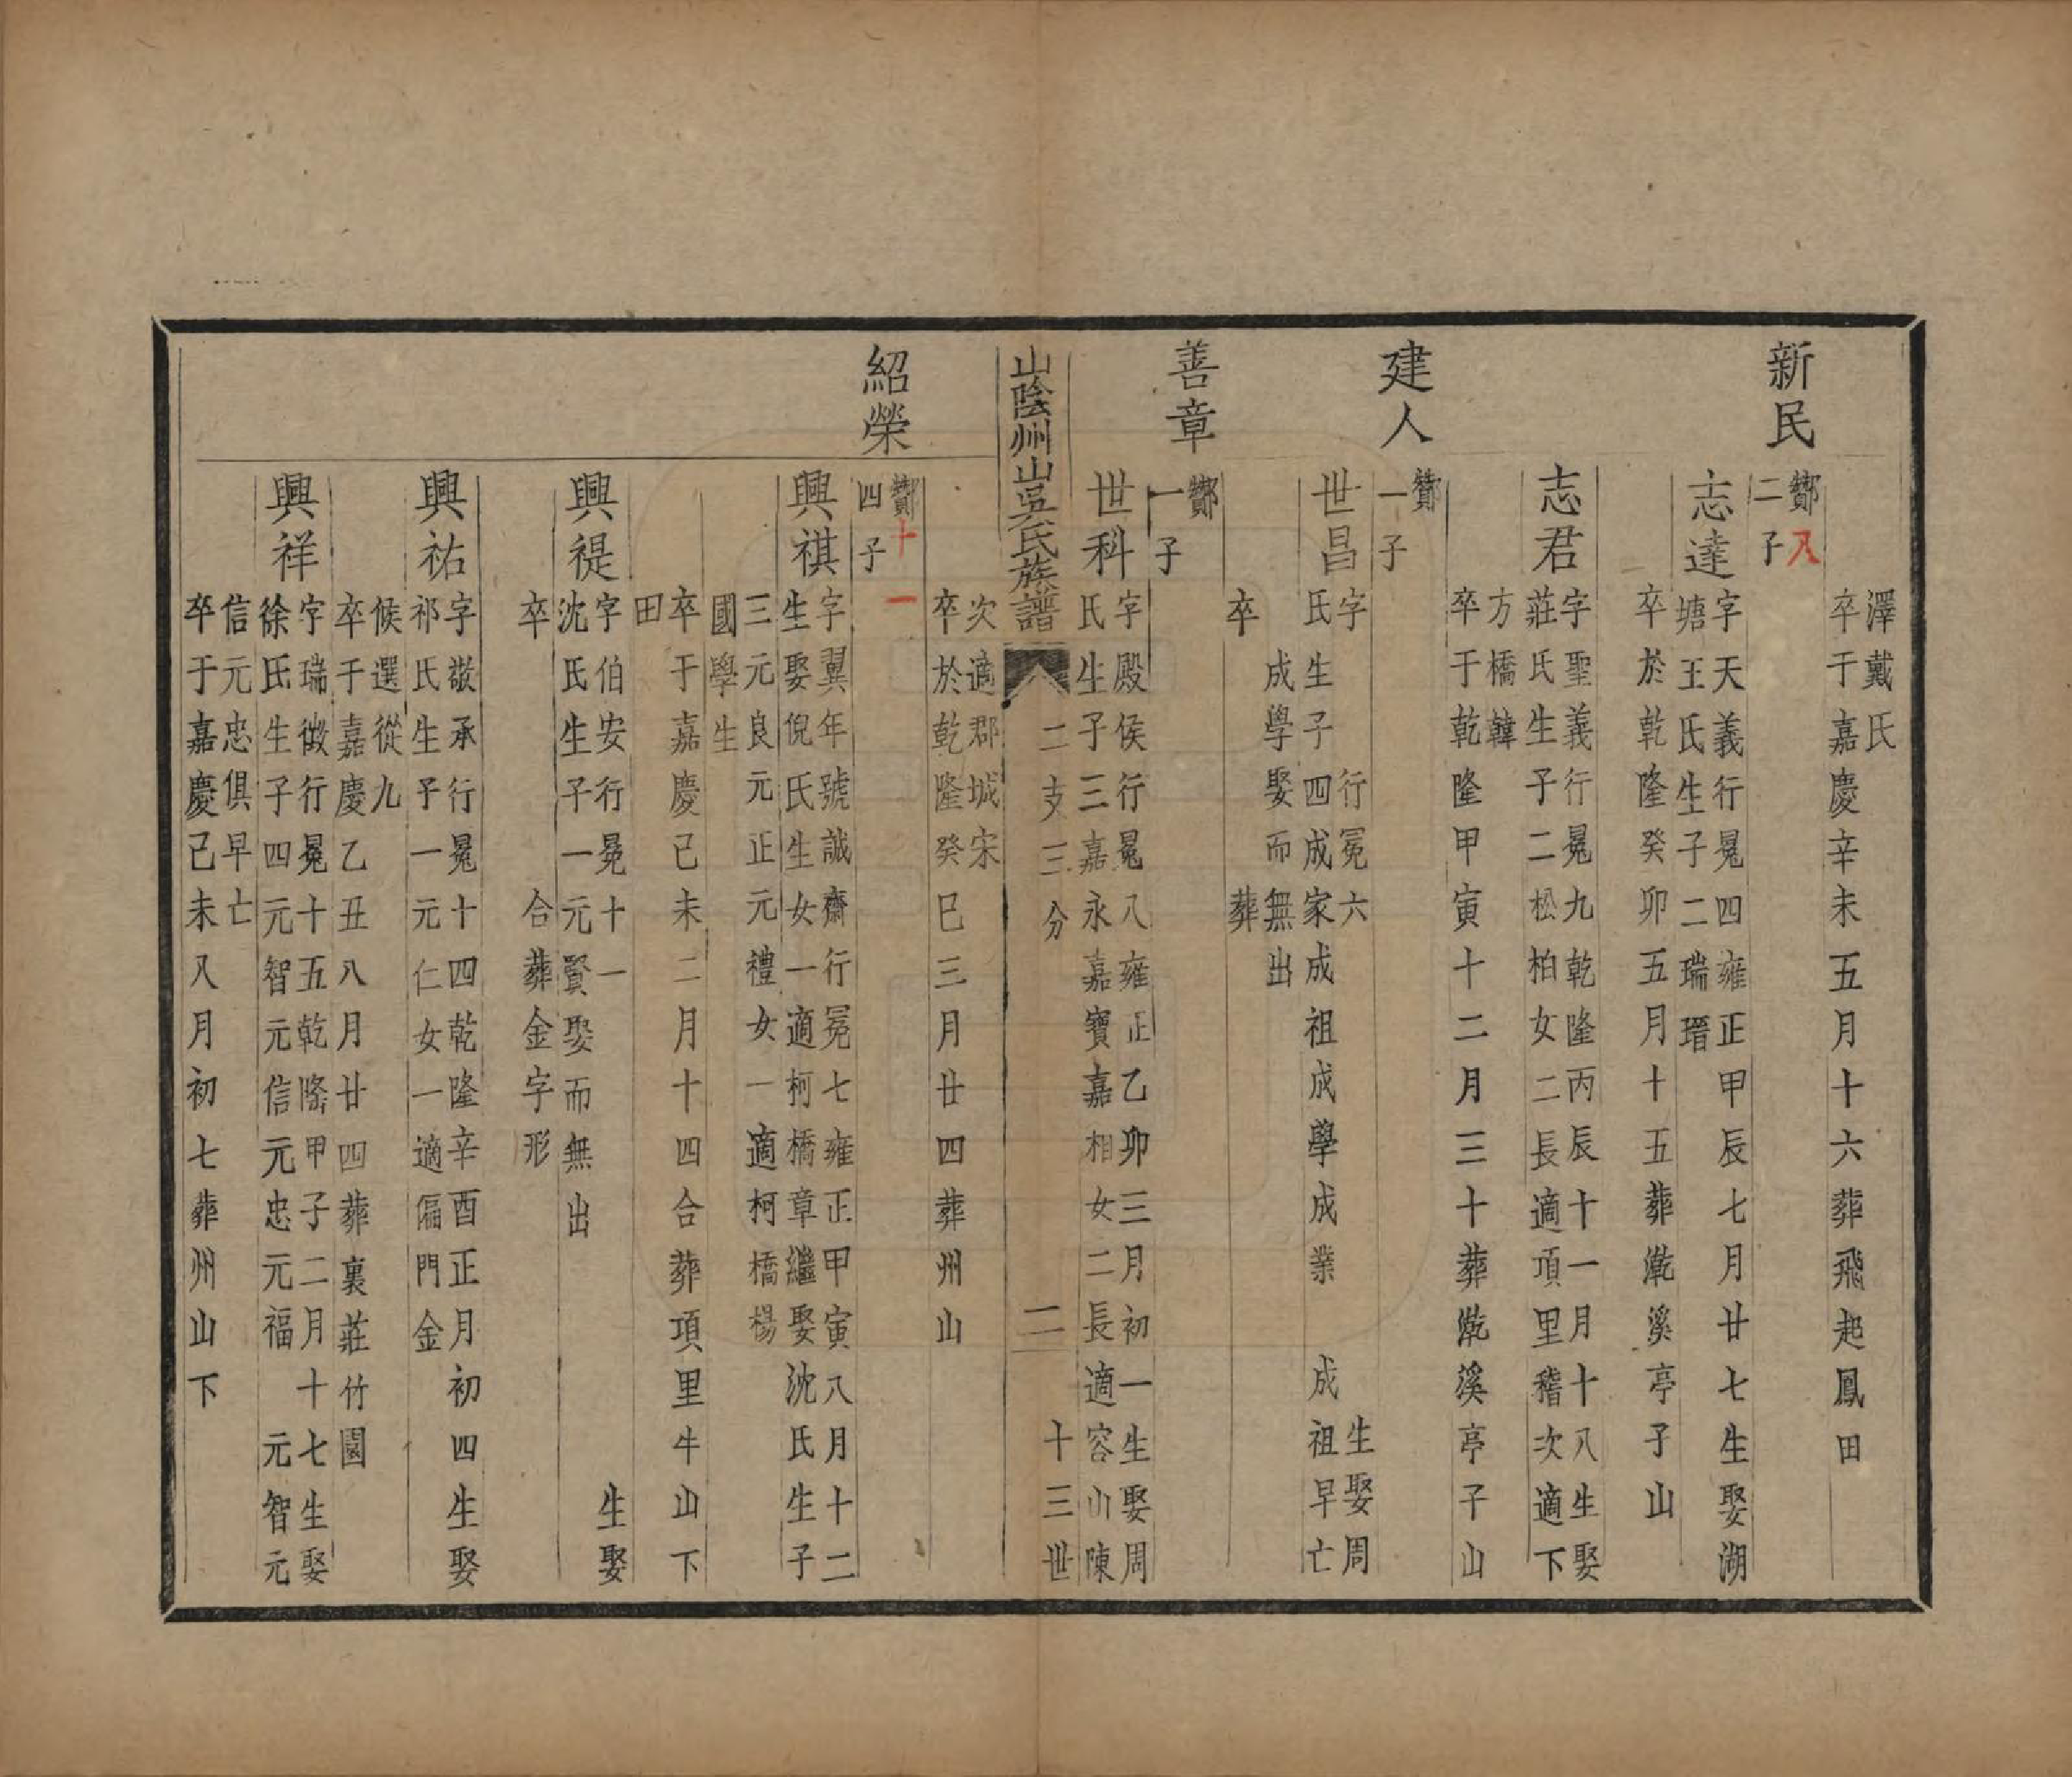 澤戴氏
卒于嘉慶辛未五月十六葬飛起鳳田
新民
酇八
二子
志達
字天義行冕四雍正甲辰七月廿七生娶湖
塘王氏生子二瑞瑨
卒於乾隆癸卯五月十五葬漧溪亭子山
志君
字聖義行冕九乾隆丙辰十一月十八生娶
莊氏生子二松柏女二長適項里稽次適下
方橋韓
卒于乾隆甲寅十二月三十葬漧溪亭子山
建人
酇
一子
世昌
字　行冕六　生娶周
氏生子四成家成祖成學成業　成祖早亡
成學娶而無出
卒　葬
善章
酇
一子
世科
字殿侯行冕八雍正乙卯三月初一生娶周
氏生子三嘉永嘉寶嘉相女二長適容山陳
山陰州山吳氏族譜
二支三分　二　十三世
次適郡城宋
卒於乾隆癸巳三月廿四葬州山
紹榮
酇十一
四子
興祺
字翼年號誠齋行冕七雍正甲寅八月十二
生娶倪氏生女一適柯橋章繼娶沈氏生子
三元良元正元禮女一適柯橋楊
國學生
卒于嘉慶己未二月十四合葬項里牛山下
田
興禔
字伯安行冕十一　生娶
沈氏生子一元賢娶而無出
卒　合葬金字形
興祐
字敬承行冕十四乾隆辛酉正月初四生娶
祁氏生子一元仁女一適偏門金
候選從九
卒于嘉慶乙丑八月廿四葬裏莊竹園
興祥
字瑞徵行冕十五乾隆甲子二月十七生娶
徐氏生子四元智元信元忠元福　元智元
信元忠俱早亡
卒于嘉慶己未八月初七葬州山下